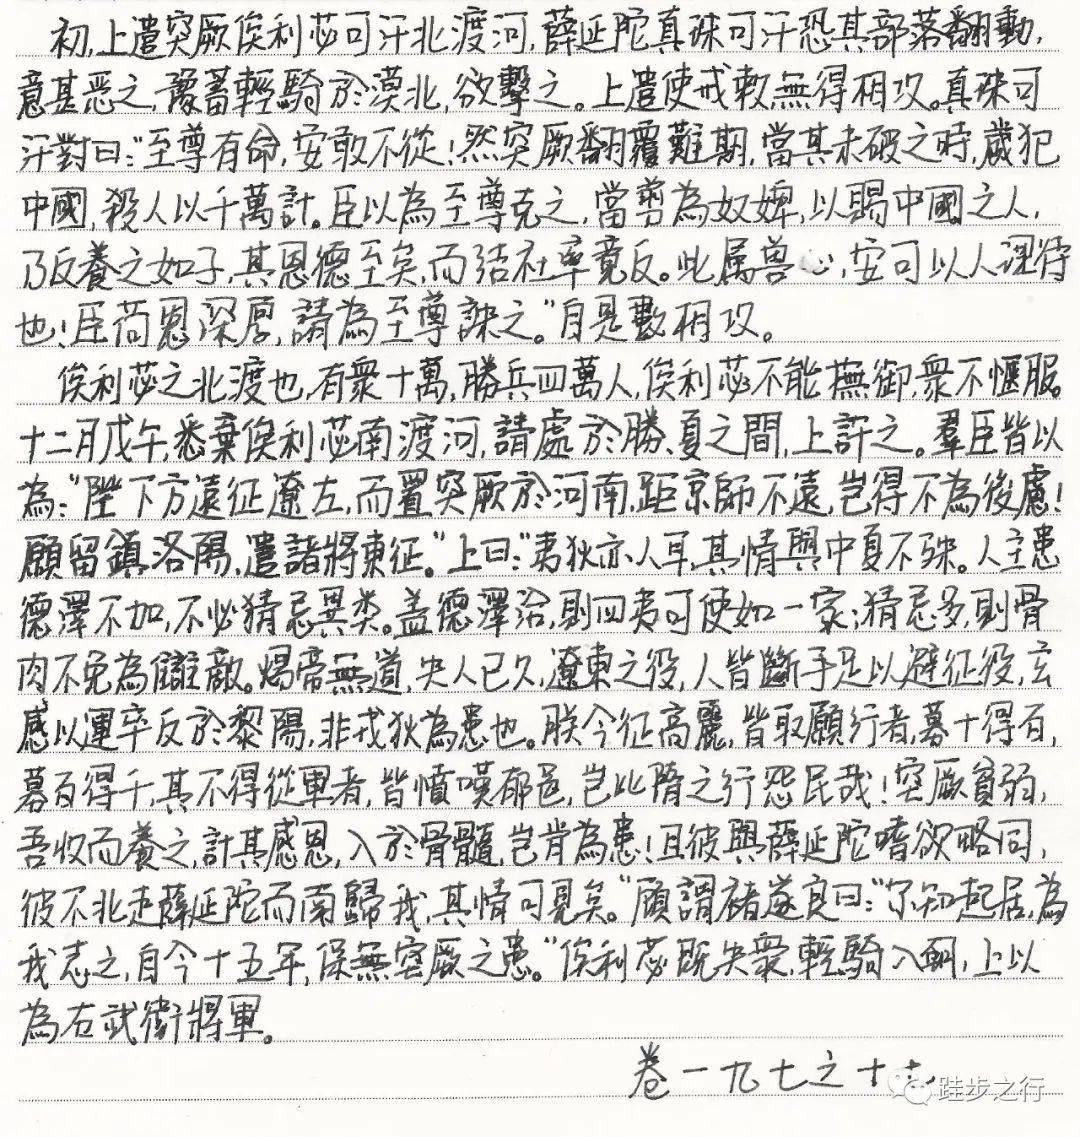 初,上遣突厥俟利苾可汗北渡河,薛延陀真珠可汗恐其部落翻動,
意甚恶之,豫蓄輕騎於漠北,欲擊之。上遣使戒敕無得相攻。真珠可
汗對曰:"至尊有命,安敢不從!然突厥翻覆難期,當其未破之時,歲犯
中國,殺人以千萬計。臣以為至尊克之,當剪為奴婢,以賜中國之人,
乃反養之如子,其恩德至矣,而结社率竟反。此属兽心,安可以人理待
也!臣荷恩深厚,請為至尊誅之。"自是數相攻。
俟利苾之北渡也,有眾十萬,勝兵四萬人,俟利苾不能撫御,衆不愜服。
十二月戊午,悉棄俟利苾南渡河,請處於勝、夏之間,上許之。羣臣皆以
為:"陛下方遠征遼左,而置突厥於河南,距京師不遠,岂得不為後慮!
願留鎮洛陽,遣諸將東征。"上曰:"夷狄亦人耳,其情與中夏不殊。人主患
德澤不加,不必猜忌異类。盖德澤洽,則四夷可使如一家;猜忌多,則骨
肉不免為讎敵。煬帝無道,失人已久,遼東之役,人皆斷手足以避征役,玄
感以運卒反於黎陽,非戎狄為患也。朕今征高麗,皆取願行者,募十得百,
募百得千,其不得從軍者,皆憤嘆郁邑,岂比隋之行怨民哉!突厥貧弱,
吾收而養之,計其感恩,入於骨髓,岂肯為患!且彼與薛延陀嗜欲略同,
彼不北走薛延陀而南歸我,其情可見矣。"顧謂褚遂良曰:"尔知起居,為
我志之,自今十五年,保無突厥之患。"俟利苾既失衆,輕騎入朝,上以
為右武衛將軍。
卷一九七之十七
跬步之行